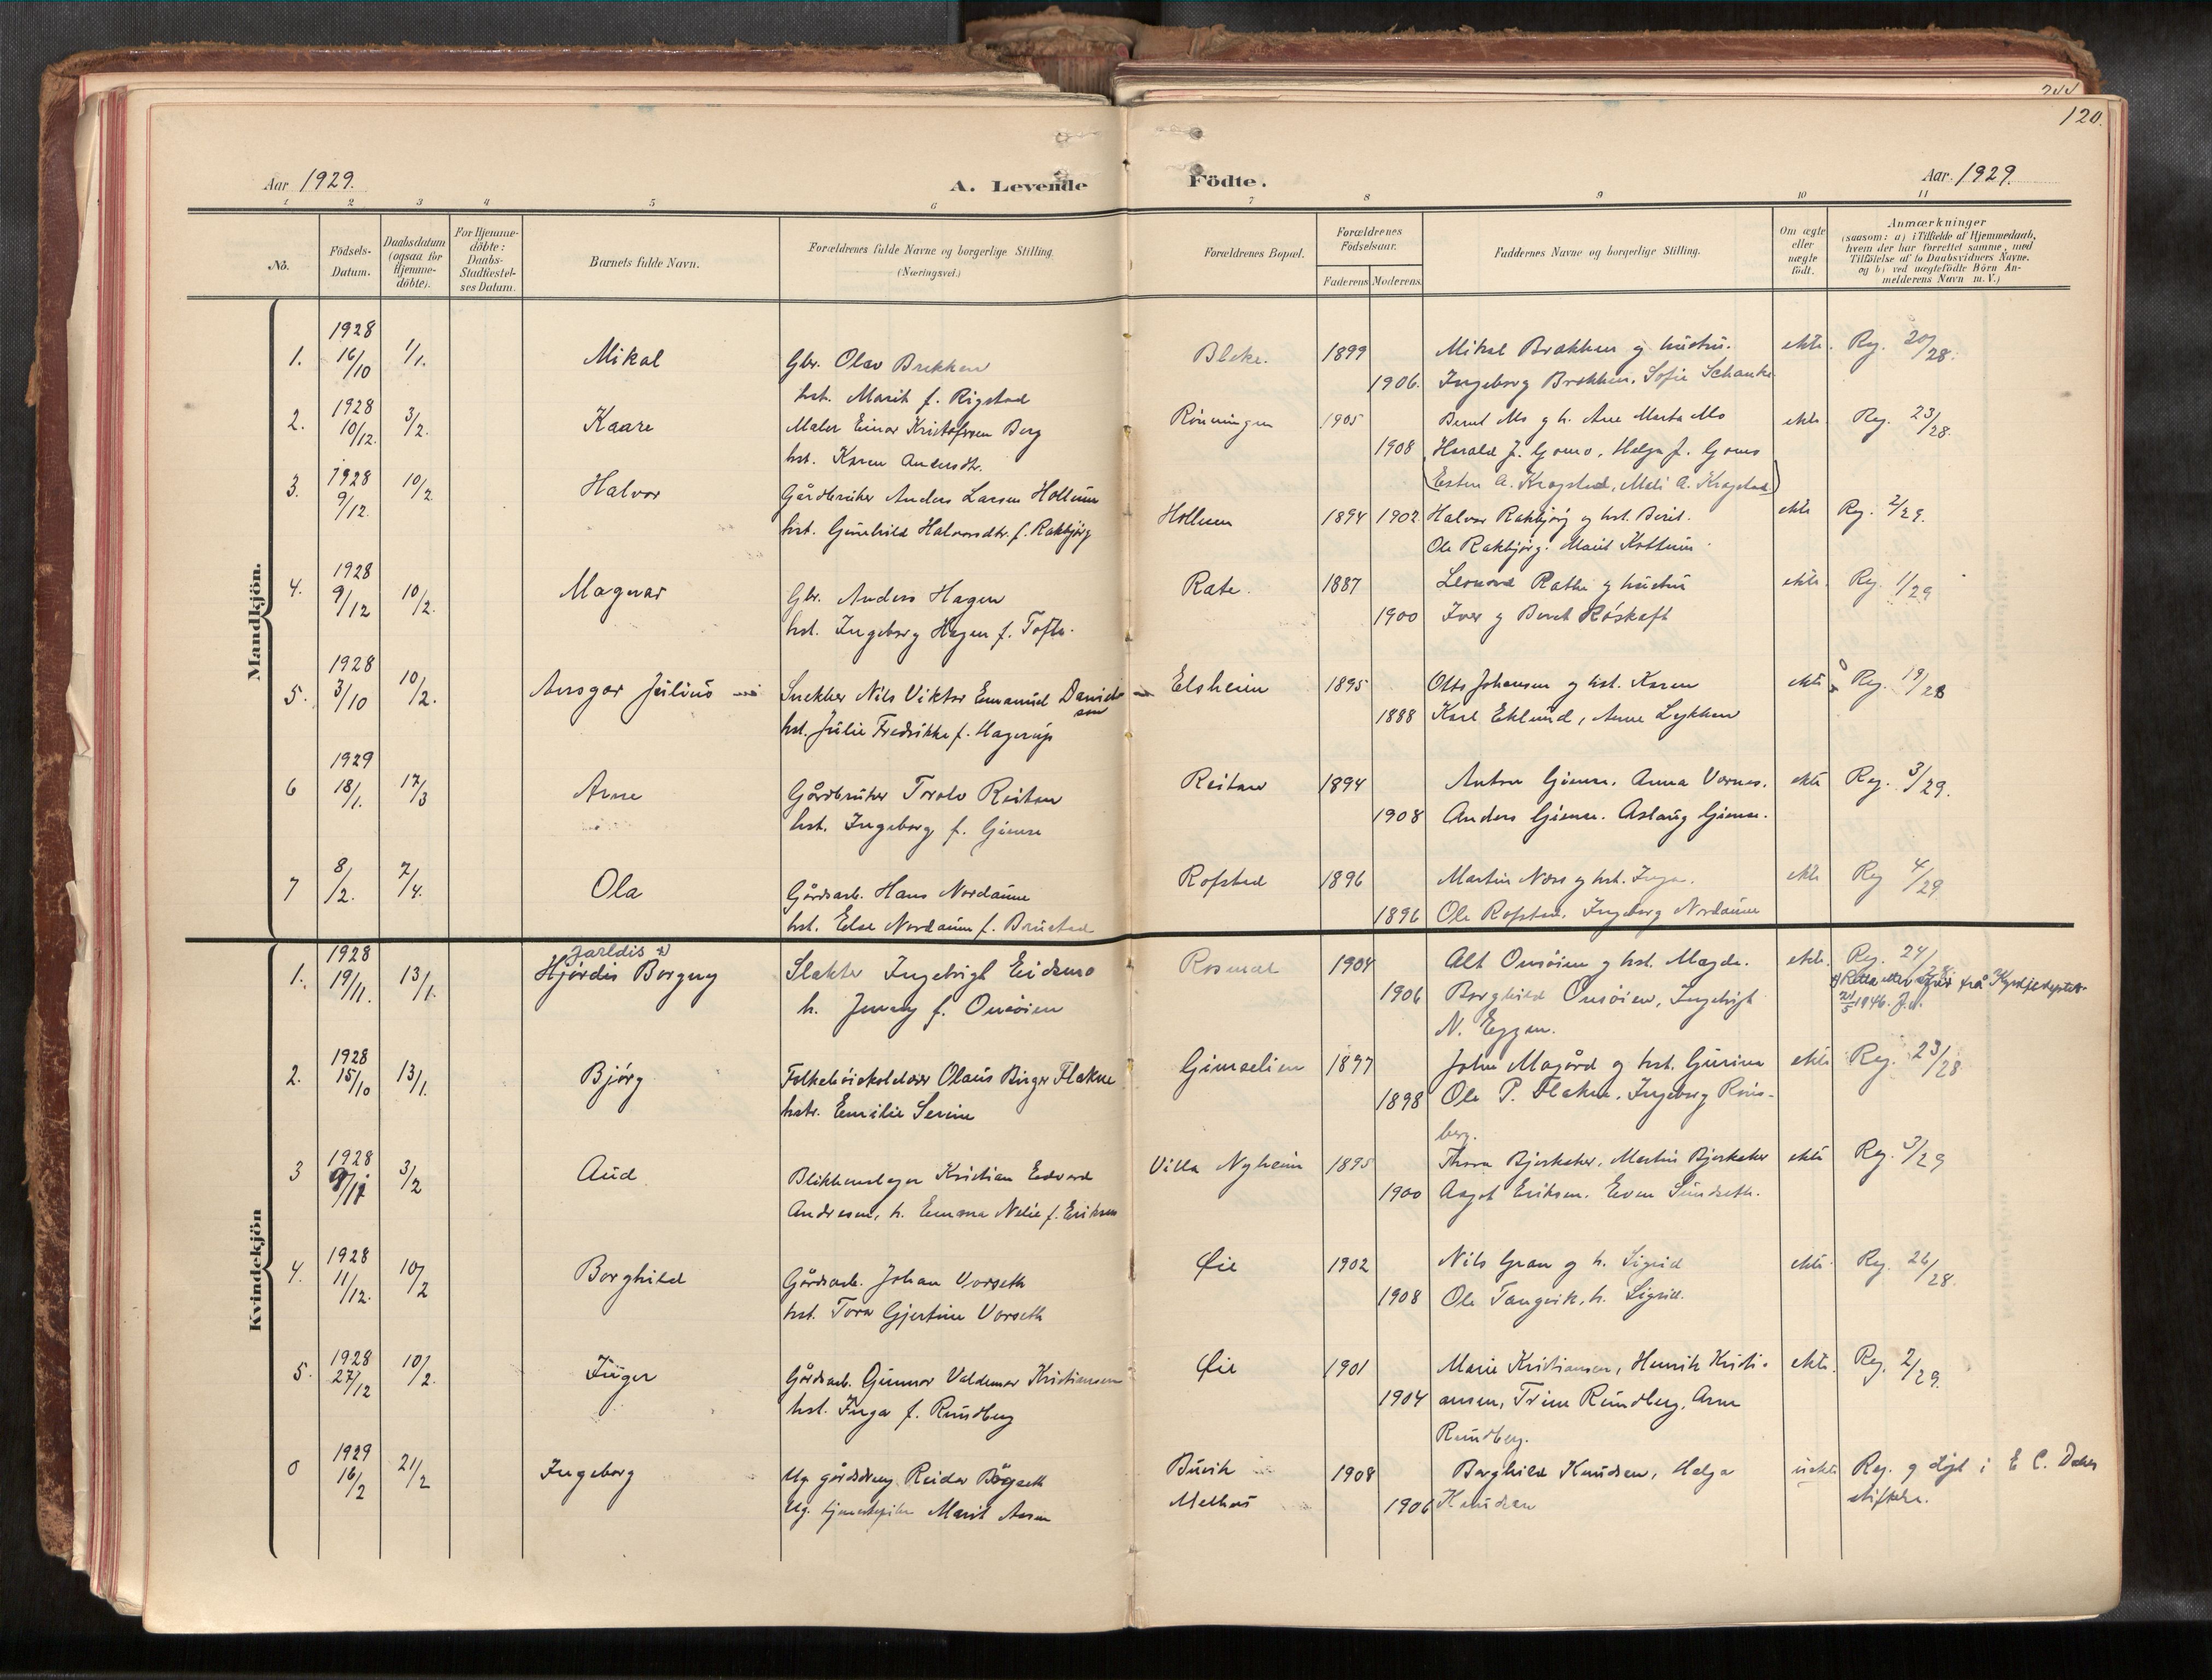 244
120.
Aar 1929.
A. Levende Födte.
Aar 1929.
1 2 3 4 5 6 7 8 9 10 11
No.
Födsels-
Datum.
Daabsdatum
(ogsaa for
Hjemme-
döbte).
For Hjemme-
döbte:
Daabs-
Stadfæstel-
ses Datum.
Barnets fulde Navn.
Forældrenes fulde Navne og borgerlige Stilling.
(Næringsvei.)
Forældrenes Bopæl.
Forældrenes
Födselsaar.
Faderens Moderens
Faddernes Navne og borgerlige Stilling.
Om ægte
eller
uægte
födt.
Anmærkninger
(saasom: a) i Tilfælde af Hjemmedaab,
hvem der har forrettet samme, med
Tilföielse af to Daabsvidners Navne.
og b) ved uægtefödte Börn An-
melderens Navn m. V.)
Mandkjön.
1. 1928 16/10 1/1. Mikal Gbr. Olav Brekken Bleke. 1899 Mikal Brækken og hustru. ekte. Reg. 20/28.
hst. Marit f. Rigstad 1906. Ingeborg Brekken, Sofie Schanke
2. 1928 10/12. 3/2. Kaare Maler Einar Kristofersen Berg Rönningen 1905 Bernt Mo og h. Ane Marta Mo ekte. Reg. 23/28.
hst. Karen Andersdtr. 1908 Harald J. Gomo, Helga J. Gomo
(Esten A. Krogstad, Mali A. Krogstad)
3. 1928 9/12. 10/2 Halvor Gårdbruker Anders Larsen Hollum Hollum 1894 1902 Halvor Rakbjörg og hst. Berit. ekte Reg. 2/29.
hst. Gunhild Halvorsdtr. f. Rakbjörg Ole Rakbjörg. Marit Kottum
4. 1928 9/12 10/2. Magnar Gbr. Anders Hagen Rate. 1887 Leonard Rathe og hustru ekte. Reg. 1/29
hst. Ingeborg Hagen f. Tofte. 1900 Iver og Beret Röskaft
5. 1928 3/10 10/2. Ansgar Julius Snekker Nils Viktor Emanuel David- Elsheim 1895 Otto Johansen og hst. Karen ekte Reg. 19/28
sen
hst. Julie Fredrikke f. Hagerup 1888 Karl Eklund, Anne Lykken
6 1929 18/1. 17/3 Arne Gårdbruker Torolv Reitan Reitan 1894 Anton Gimse. Anna Vornes. ekte Reg. 3/29.
hst. Ingeborg f. Gimse 1908 Anders Gimse. Aslaug Gimse.
7 8/2. 7/4. Ola Gårdsarb. Hans Nordaune Rofstad 1896 Martin Næss og hst. Inga. ekte Reg 4/29
hst. Else Nordaune f. Brustad 1896 Ole Rofstad. Ingeborg Nordaune
Kvindekjön
Jarldis x)
1. 1928 19/11. 13/1. Hjördis Borgny Slakter Ingebrigt Eidsmo Rosmæl 1904 Alt Onsöien og hst. Magda. ekte. Reg. 24/
h. Jenny f. Onsöien 1906 Borghild Onsöien, Ingebrigt
N. Eggen.
21/5 1946.
2. 1928 15/10 13/1. Björg Folkehöiskolelærer Olaus Birger Flakne Gimselien 1897 John Magård og hst. Gurine ekte Reg. 23/28
hstr. Emilie Serine 1898 Ole P. Flakne, Ingeborg Röns-
berg.
3 1928 3/2 Aud Blikkenslager Kristian Edvard Villa Nyheim 1895 Thora Bjerkaker, Martin Bjerkaker ekte Reg. 3/29
Andresen, h. Emma Nelie f. Eriksen 1900 Aagot Eriksen. Even Sundseth.
4. 1928 11/12. 10/2 Borghild Gårdsarb. Johan Vorseth Øie 1902 Nils Gran og h. Sigrid ekte. Reg. 26/28.
hst. Tora Gjertine Vorseth 1908 Ole Tangvik, h. Sigrid.
5. 1928 27/12 10/2. Inger Gårdsarb. Gunnar Valdemar Kristiansen Øie 1901 Marie Kristiansen, Henrik Kristi- ekte. Reg. 2/29.
hst. Inga f. Rundberg 1904 ansen, Trine Rundberg, Arne
Rundberg.
0 1929 16/2 21/2 Ingeborg Ug. gårdsdreng Reidar Börseth Buvik 1908 Borghild Knudsen, Helga uekte Reg. og döpt i E. C. Dahls
Ug. tjenestepike Marit Aasen Melhus 1906 Knudsen stiftelse.